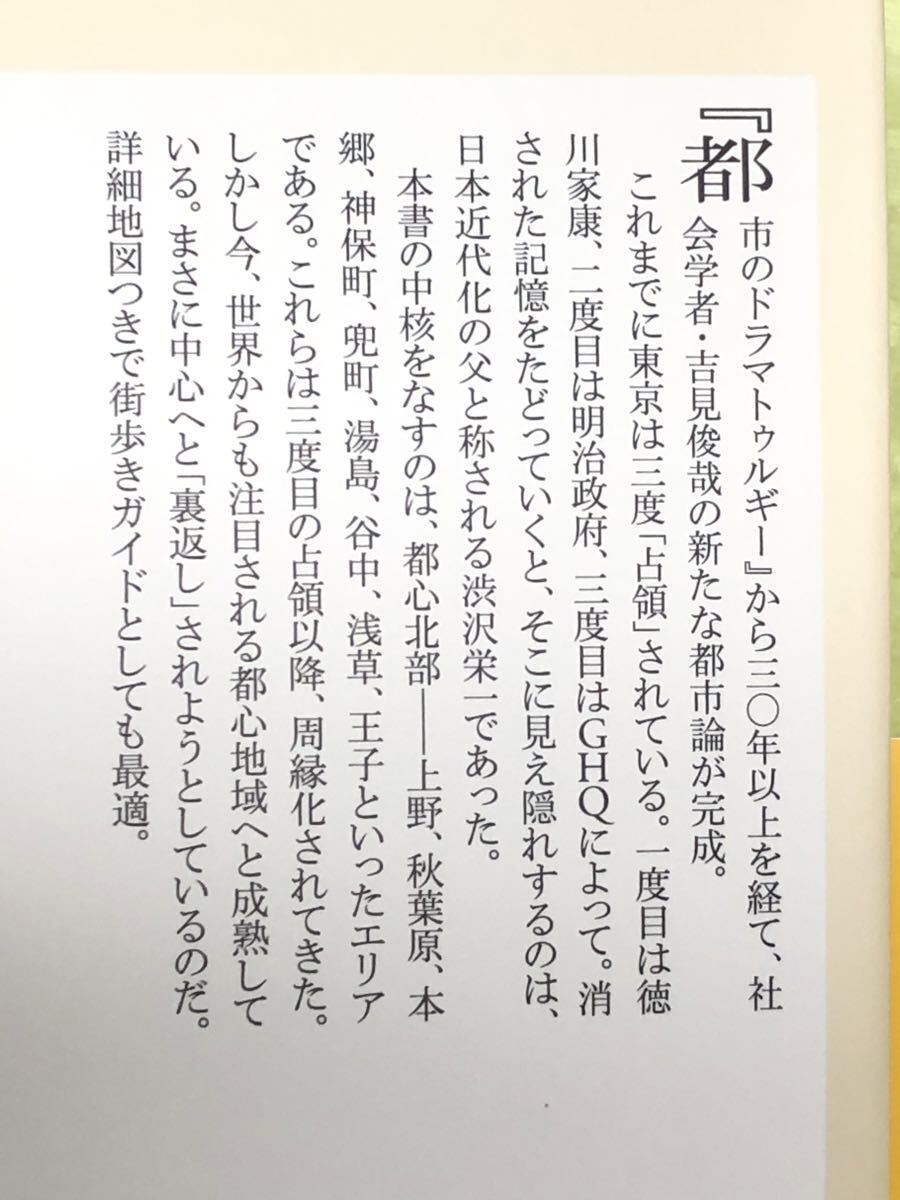 『都市のドラマトゥルギー』から三〇年以上を経て、社
会学者・吉見俊哉の新たな都市論が完成。
これまでに東京は三度「占領」されている。一度目は徳
川家康、二度目は明治政府、三度目はGHQによって。消
された記憶をたどっていくと、そこに見え隠れするのは、
日本近代化の父と称される渋沢栄一であった。
本書の中核をなすのは、都心北部――上野、秋葉原、本
郷、神保町、兜町、湯島、谷中、浅草、王子といったエリア
である。これらは三度目の占領以降、周縁化されてきた。
しかし今、世界からも注目される都心地域へと成熟して
いる。まさに中心へと「裏返し」されようとしているのだ。
詳細地図つきで街歩きガイドとしても最適。